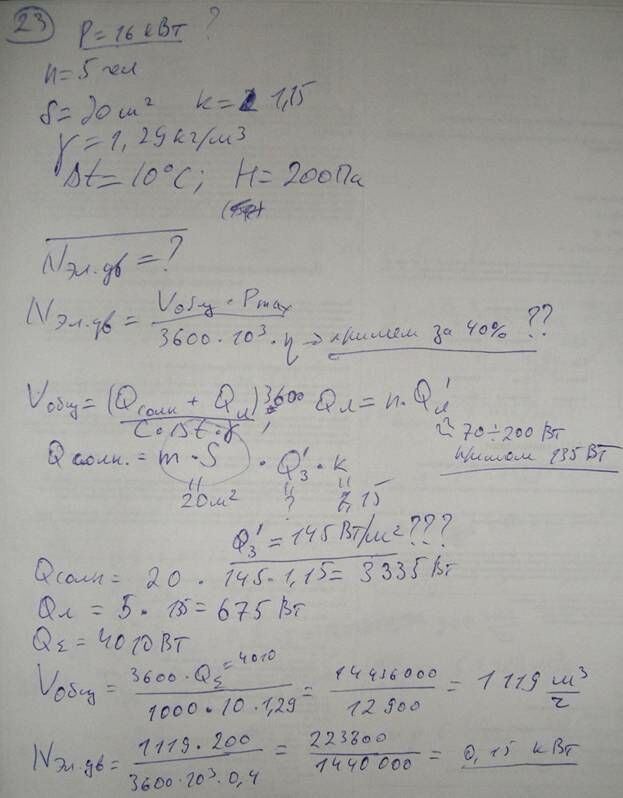 23 P = 16 кВт ?
n = 5 чел
S = 20 м² k = 1,15
γ = 1,29 кг/м³
Δt = 10°C; H = 200 Па
Nэл.дв = ?
Nэл.дв = Vобщ · Pmax / 3600 · 10³ · η → примем за 40% ??
Vобщ = (Qсолн + Qл) 3600 / C · Δt · γ , Qл = n · Qл'
≈ 70 ÷ 200 Вт
примем 135 Вт
Qсолн. = m · S · Q₃' · k
20 м² ? 1,15
Q₃' = 145 Вт/м² ???
Qсолн = 20 · 145 · 1,15 = 3335 Вт
Qл = 5 · 135 = 675 Вт
QΣ = 4010 Вт
Vобщ = 3600 · QΣ = 4010 / 1000 · 10 · 1,29 = 14436000 / 12900 = 1119 м³/ч
Nэл.дв = 1119 · 200 / 3600 · 10³ · 0,4 = 223800 / 1440000 = 0,15 кВт